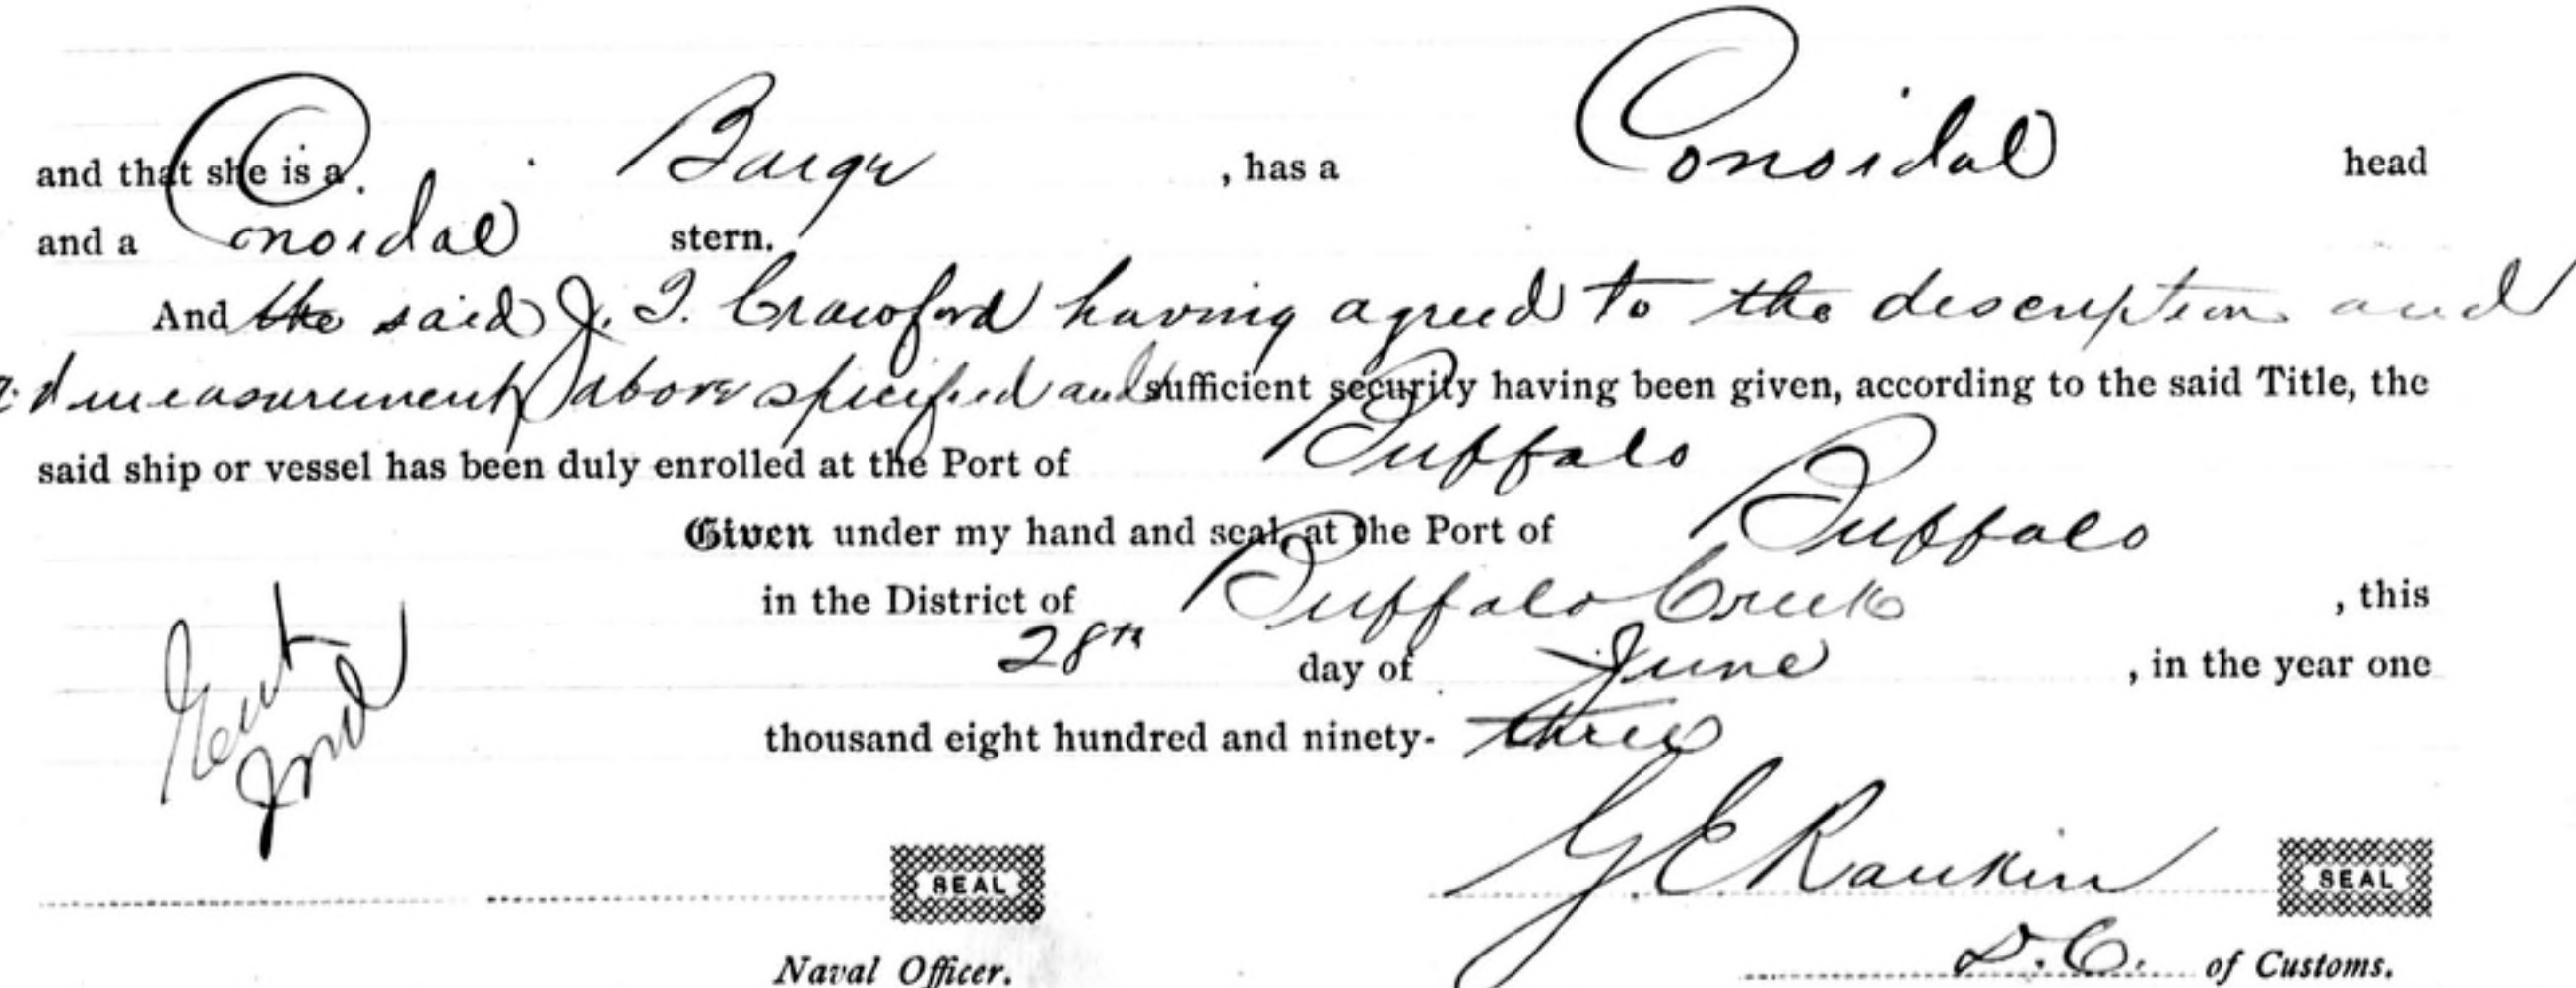 and that she is a Barge , has a Conoidal head
and a Conoidal stern.
And the said J. T. Crawford having agreed to the description and
measurement above specified and sufficient security having been given, according to the said Title, the
said ship or vessel has been duly enrolled at the Port of Buffalo
Given under my hand and seal, at the Port of Buffalo
in the District of Buffalo Creek , this
28th day of June , in the year one
thousand eight hundred and ninety- three
G E Rankin
SEAL SEAL
Naval Officer. D.C. of Customs.